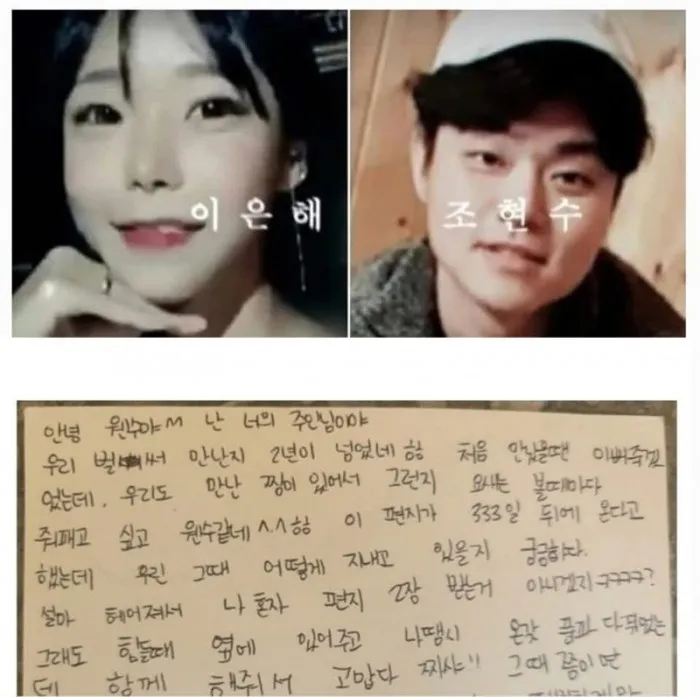 이은해
조현수
안녕 원수야^^ 난 너의 주인님이야
우리 벌써 만난지 2년이 넘었네 항 처음 만났을땐 이뻐죽겠
었는데. 우리도 만난 짬이 있어서 그런지 요새는 볼때마다
줘패고 싶고 원수같네^^항 이 편지가 333일 뒤에 온다고
했는데 우린 그때 어떻게 지내고 있을지 궁금하다.
설마 헤어져서 나 혼자 편지 2장 받는거 아니겠지ㅋㅋㅋㅋ?
그래도 힘들때 옆에 있어주고 나땜시 온갖 풍파 다뒤었는
데 함께 해줘서 고맙다 짜샤!! 그때 쯤이면